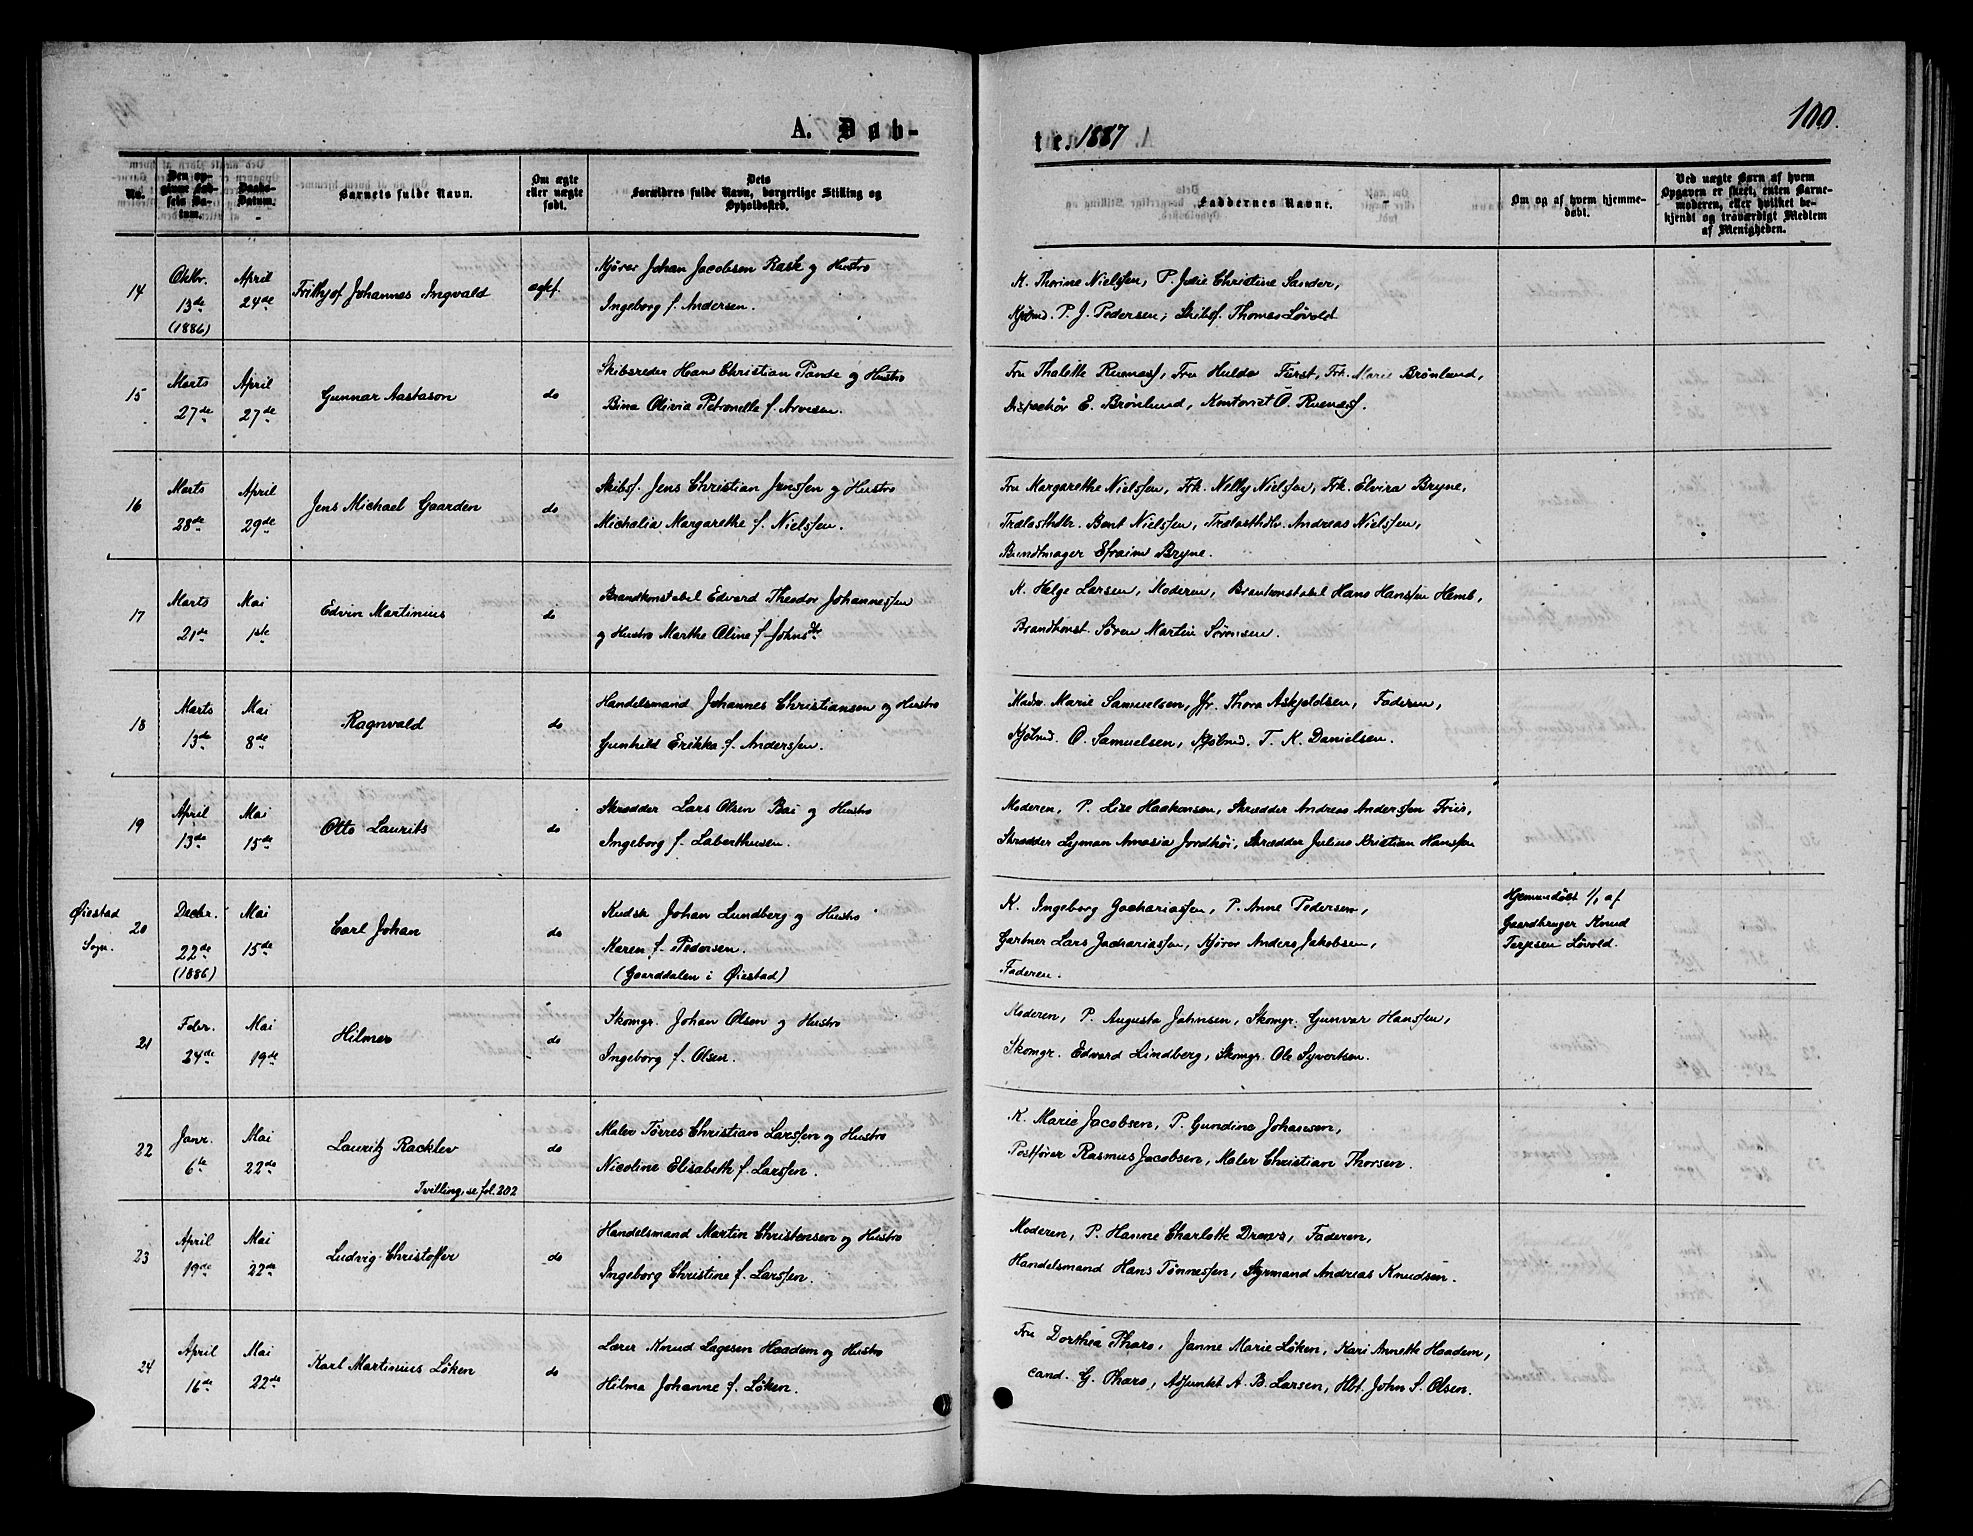 A. Døb-
te. 1887
100.
No.
Den op-
givne Fød-
sels Da-
tum.
Daabs-
Datum.
Barnets fulde Navn.
Om ægte
eller uægte
født.
Dets
Forældres fulde Navn, borgerlige Stilling og
Opholdssted.
Faddernes Navne.
Om og af hvem hjemme-
døbt.
Ved uægte Børn af hvem
Opgaven er skeet, enten Barne-
moderen, eller hvilket be-
kjendt og troværdigt Medlem
af Menigheden.
14
Oktbr.
13de
(1886)
April
24de
Frithjof Johannes Ingvald
ægte.
Kjører Johan Jacobsen Rask og Hustro
Ingeborg f. Andersen.
K. Thorine Nielsen, P. Julie Christine Sander,
Kjøbmd. P. J. Pedersen, Skibsf. Thomas Løvold
15
Marts
27de
April
27de
Gunnar Aastason
do
Skibsreder Hans Christian Pande og Hustro
Bina Olivia Petronelle f. Arvesen.
Fru Thalette Ruenæss, Fru Hulda Fürst, Frk. Marie Brønlund,
Dispachør E. Brønlund, Kontorist O. Ruenæss.
16
Marts
28de
April
29de
Jens Michael Gaarden
do
Skibsf. Jens Christian Jenssen og Hustro
Michalia Margarethe f. Nielssen.
Fru Margarethe Nielssen, Frk. Nelly Nielssen, Frk. Elvira Bryne,
Trælasthdlr. Bent Nielssen, Trælasthdlr. Andreas Nielssen,
Bundtmager Efraim Bryne.
17
Marts
21de
Mai
1ste
Edvin Martinius
do
Brandkonstabel Edvard Theodor Johannessen
og Hustro Marthe Oline f. Johnsdr
K. Helge Larsen, Moderen, Brankonstabel Hans Hanssen Hemb,
Brandkonst. Søren Martin Sørensen.
18
Marts
13de
Mai
8de
Ragnvald
do
Handelsmand Johannes Christiansen og Hustro
Gunhild Erikka f. Anderssen.
Mad. Marie Samuelsen, Jfr. Thora Askjeldsen, Faderen,
Kjøbmd. O. Samuelsen, Kjøbmd. T. K. Danielsen.
19
April
13de
Mai
15de
Otto Laurits
do
Skrædder Lars Olsen Bai og Hustro
Ingeborg f. Laberthusen.
Moderen, P. Lise Haakonsen, Skrædder Andreas Anderssen Friis,
Skrædder Lyman Amasia Jordhøi, Skrædder Julius Kristian Hanssen
Øiestad
Sogn.
20
Decbr.
22de
(1886)
Mai
15de
Carl Johan
do
Kudsk Johan Lundberg og Hustro
Karen f. Pedersen.
(Gaarddalen i Øiestad)
K. Ingeborg Zachariassen, P. Anne Pedersen,
Gartner Lars Zachariassen, Kjører Anders Jakobsen,
Faderen.
Hjemmedøbt 1/1 af
Gaardbruger Knud
Terjesen Løvold.
21
Febr.
24de
Mai
19de
Hilmer
do
Skomgr. Johan Olsen og Hustro
Ingeborg f. Olsen.
Moderen, P. Augusta Johnsen, Skomgr. Gunvar Hanssen,
Skomgr. Edvard Lindberg, Skomgr. Ole Syvertsen.
22
Janr.
6te
Mai
22de
Lauritz Racklev
Tvilling, se fol. 202
do
Maler Tørres Christian Larssen og Hustro
Nicoline Elisabeth f. Larssen.
K. Marie Jacobsen, P. Gundine Johansen,
Postfører Rasmus Jacobsen, Maler Christian Thorsen.
23
April
19de
Mai
22de
Ludvig Christoffer
do
Handelsmand Martin Christensen og Hustro
Ingeborg Christine f. Larssen.
Moderen, P. Hanne Charlotte Drews, Faderen,
Handelsmand Hans Tønnessen, Styrmand Andreas Knudsen.
24
April
16de
Mai
22de
Karl Martinius Løken
do
Lærer Knud Lagesen Haadem og Hustro
Hilma Johanne f. Løken.
Fru Dorthea Tharo, Janne Marie Løken, Kari Annette Haadem,
Cand. G. Tharo, Adjunkt A. B. Larsen, Hbt. John S. Olsen.